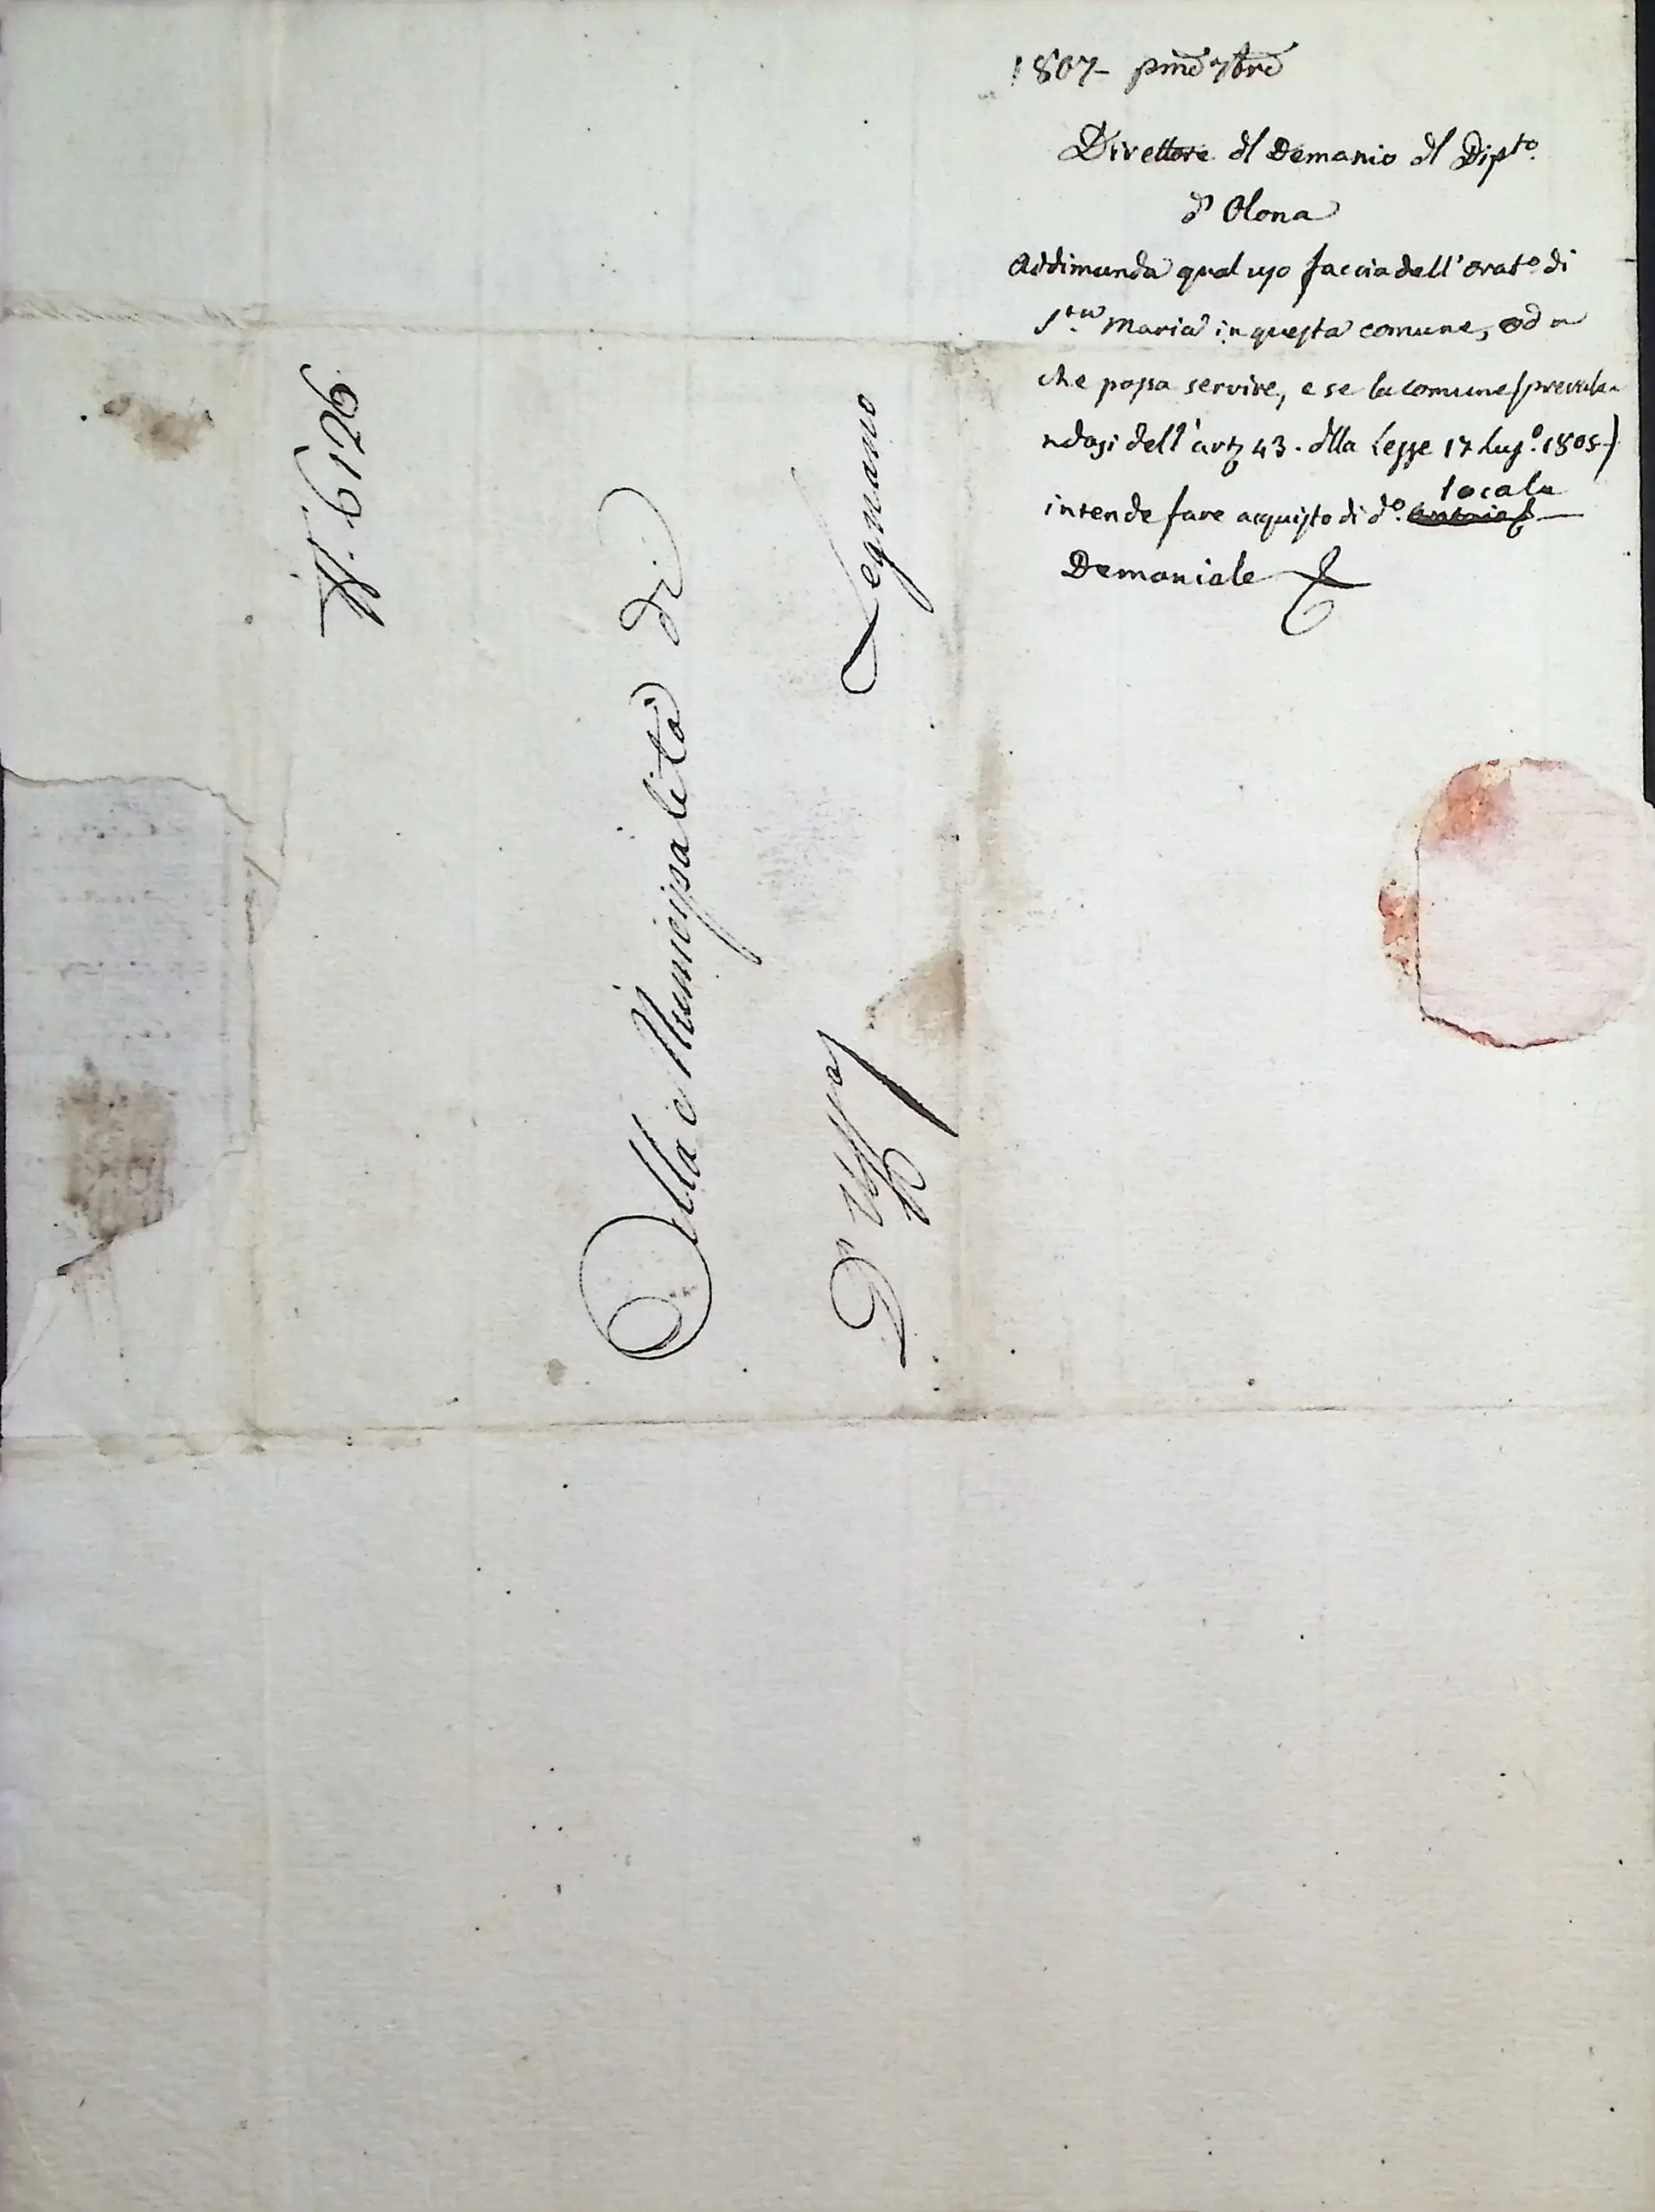 1807 - pmo 7bre
Direttore dl Demanio dl Dipto.
d' Olona
Addimanda qual uso faccia dell'Orato. di
Sta. Maria in questa comune, od a
che possa servire, e se la comune (prevale-
ndosi dell'art 43. dlla Legge 17 Lugo. 1805)
intende fare acquisto di do. locale
Demaniale
N. 6126
Alla Municipalità di
Legnano
D' Uffo